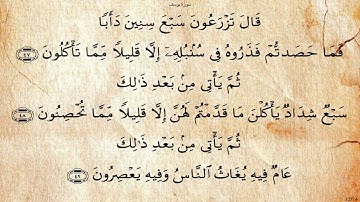 سورة يوسف
قَالَ تَزْرَعُونَ سَبْعَ سِنِينَ دَأَبًا
فَمَا حَصَدتُّمْ فَذَرُوهُ فِى سُنۢبُلِهِۦٓ إِلَّا قَلِيلًا مِّمَّا تَأْكُلُونَ ﴿٤٧﴾
ثُمَّ يَأْتِى مِنۢ بَعْدِ ذَٰلِكَ
سَبْعٌ شِدَادٌ يَأْكُلْنَ مَا قَدَّمْتُمْ لَهُنَّ إِلَّا قَلِيلًا مِّمَّا تُحْصِنُونَ ﴿٤٨﴾
ثُمَّ يَأْتِى مِنۢ بَعْدِ ذَٰلِكَ
عَامٌ فِيهِ يُغَاثُ ٱلنَّاسُ وَفِيهِ يَعْصِرُونَ ﴿٤٩﴾